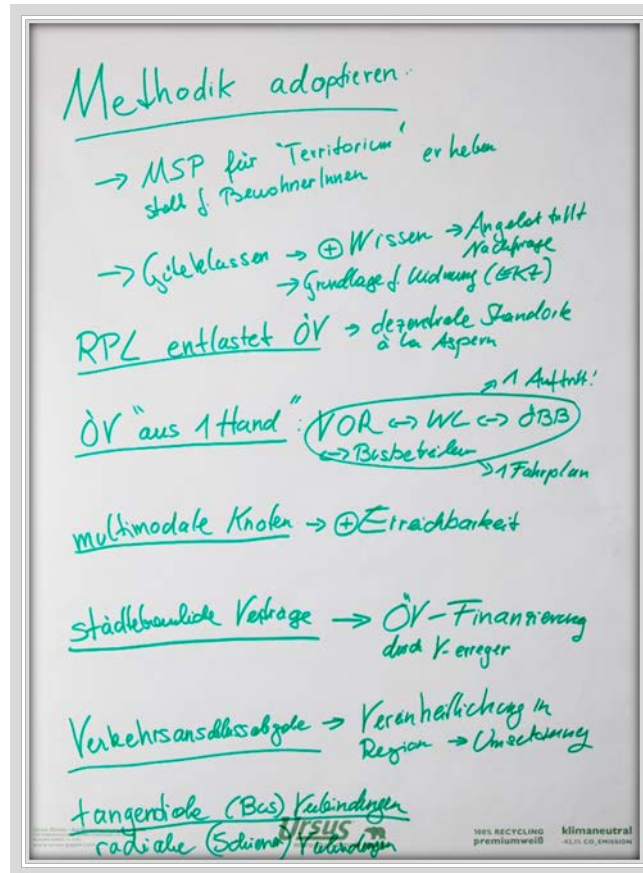 Methodik adoptieren:
→ MSP für "Territorium" erheben
statt f. BewohnerInnen
→ Güteklassen → ⊕ Wissen → Angebot trifft
Nachfrage
→ Grundlage f. Widmung (EKZ)
RPL entlastet ÖV → dezentrale Standorte
à la Aspern
→ 1 Auftritt!
ÖV "aus 1 Hand": VOR ↔ WL ↔ ÖBB
↔ Busbetreiber
→ 1 Fahrplan
multimodale Knoten → ⊕ Erreichbarkeit
städtebauliche Verträge → ÖV-Finanzierung
durch V-erreger
Verkehrsanschlussabgabe → Vereinheitlichung in
Region → Umsetzung
tangentiale (Bus) Verbindungen
radiale (Schiene) Verbindungen
Ursus
100% RECYCLING
premiumweiß
klimaneutral